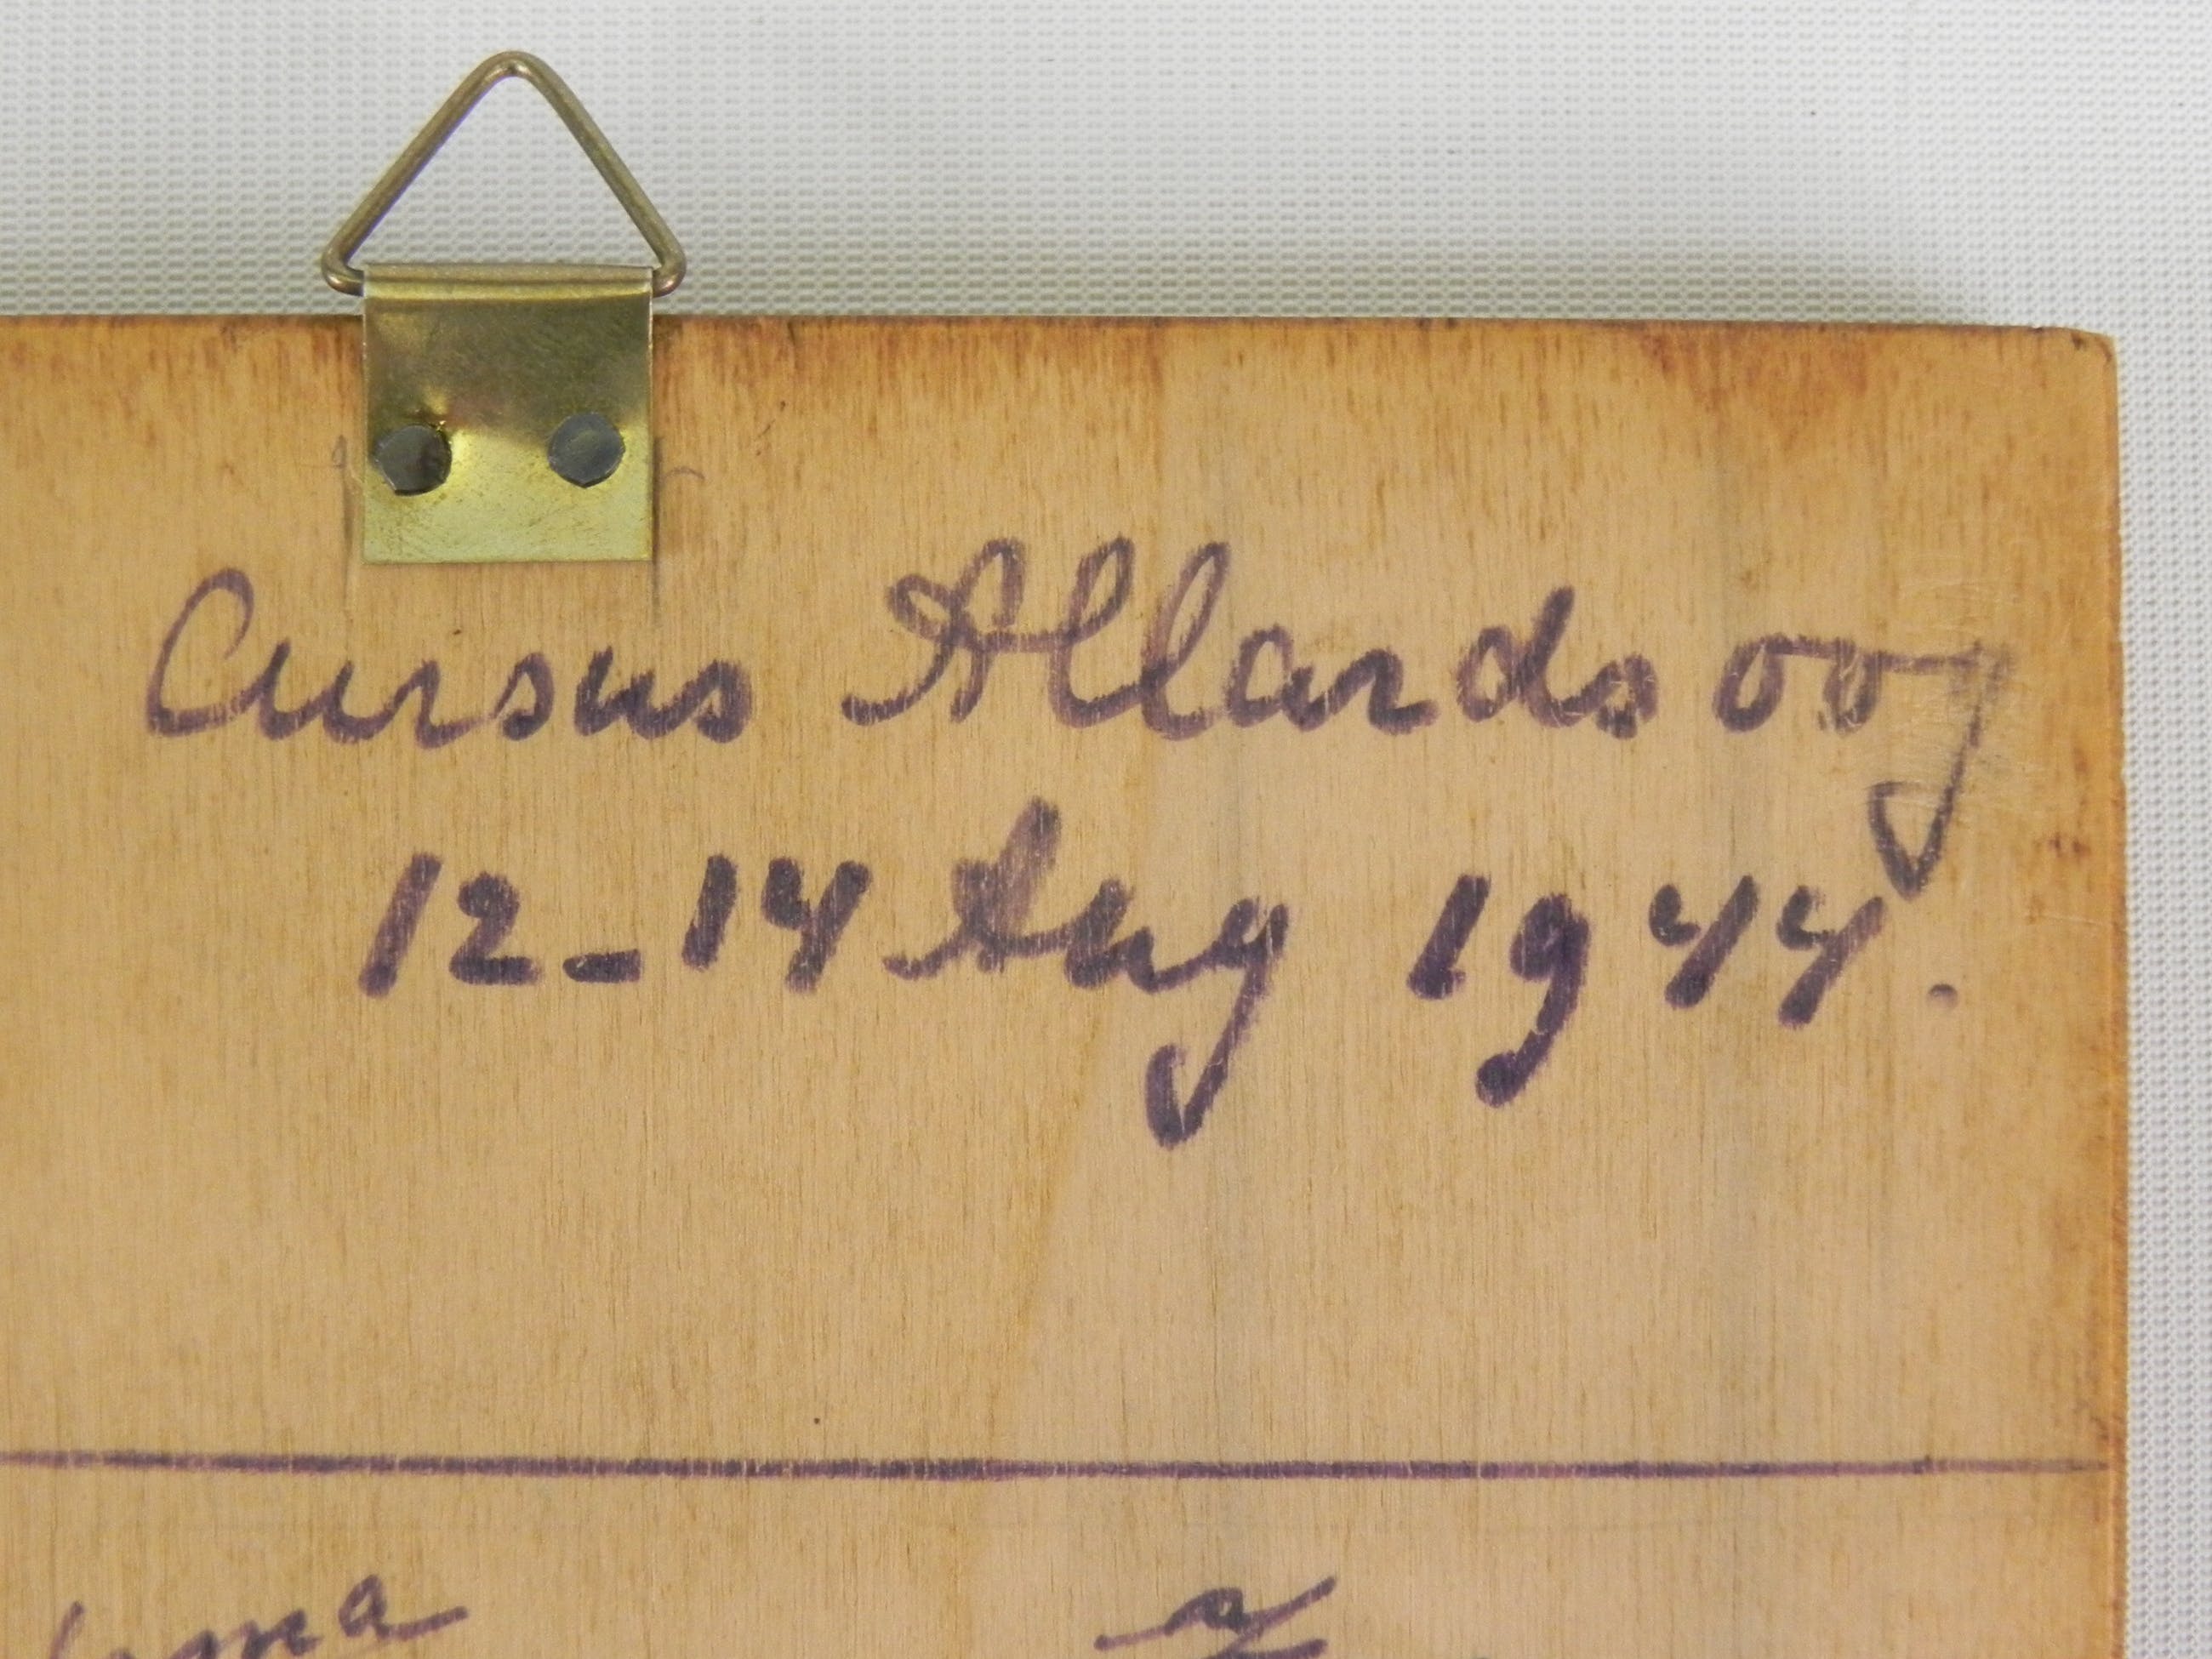 Cursus Allardsoog
12-14 Aug 1944.